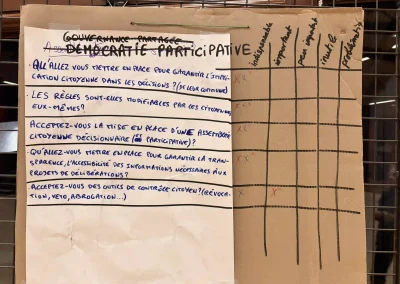 GOUVERNANCE PARTAGÉE
DÉMOCRATIE PARTICIPATIVE
indispensable
important
peu important
inutile
problématique
- QU'ALLEZ VOUS METTRE EN PLACE POUR GARANTIR L'IMPLI-
CATION CITOYENNE DANS LES DÉCISIONS ? (DE LEUR COMMUNE)
- LES RÈGLES SONT-ELLES MODIFIABLES PAR CES CITOYENNES
EUX-MÊMES ?
ACCEPTEZ-VOUS LA MISE EN PLACE D'UNE ASSEMBLÉE
CITOYENNE DÉCISIONNAIRE ( PARTICIPATIVE) ?
- QU'ALLEZ VOUS METTRE EN PLACE POUR GARANTIR LA TRAN-
SPARENCE, L'ACCESSIBILITÉ DES INFORMATIONS NÉCESSAIRES AUX
PROJETS DE DÉLIBÉRATIONS ?
ACCEPTEZ-VOUS DES OUTILS DE CONTRÔLE CITOYEN ? (RÉVOCA-
TION, VETO, ABROGATION...)